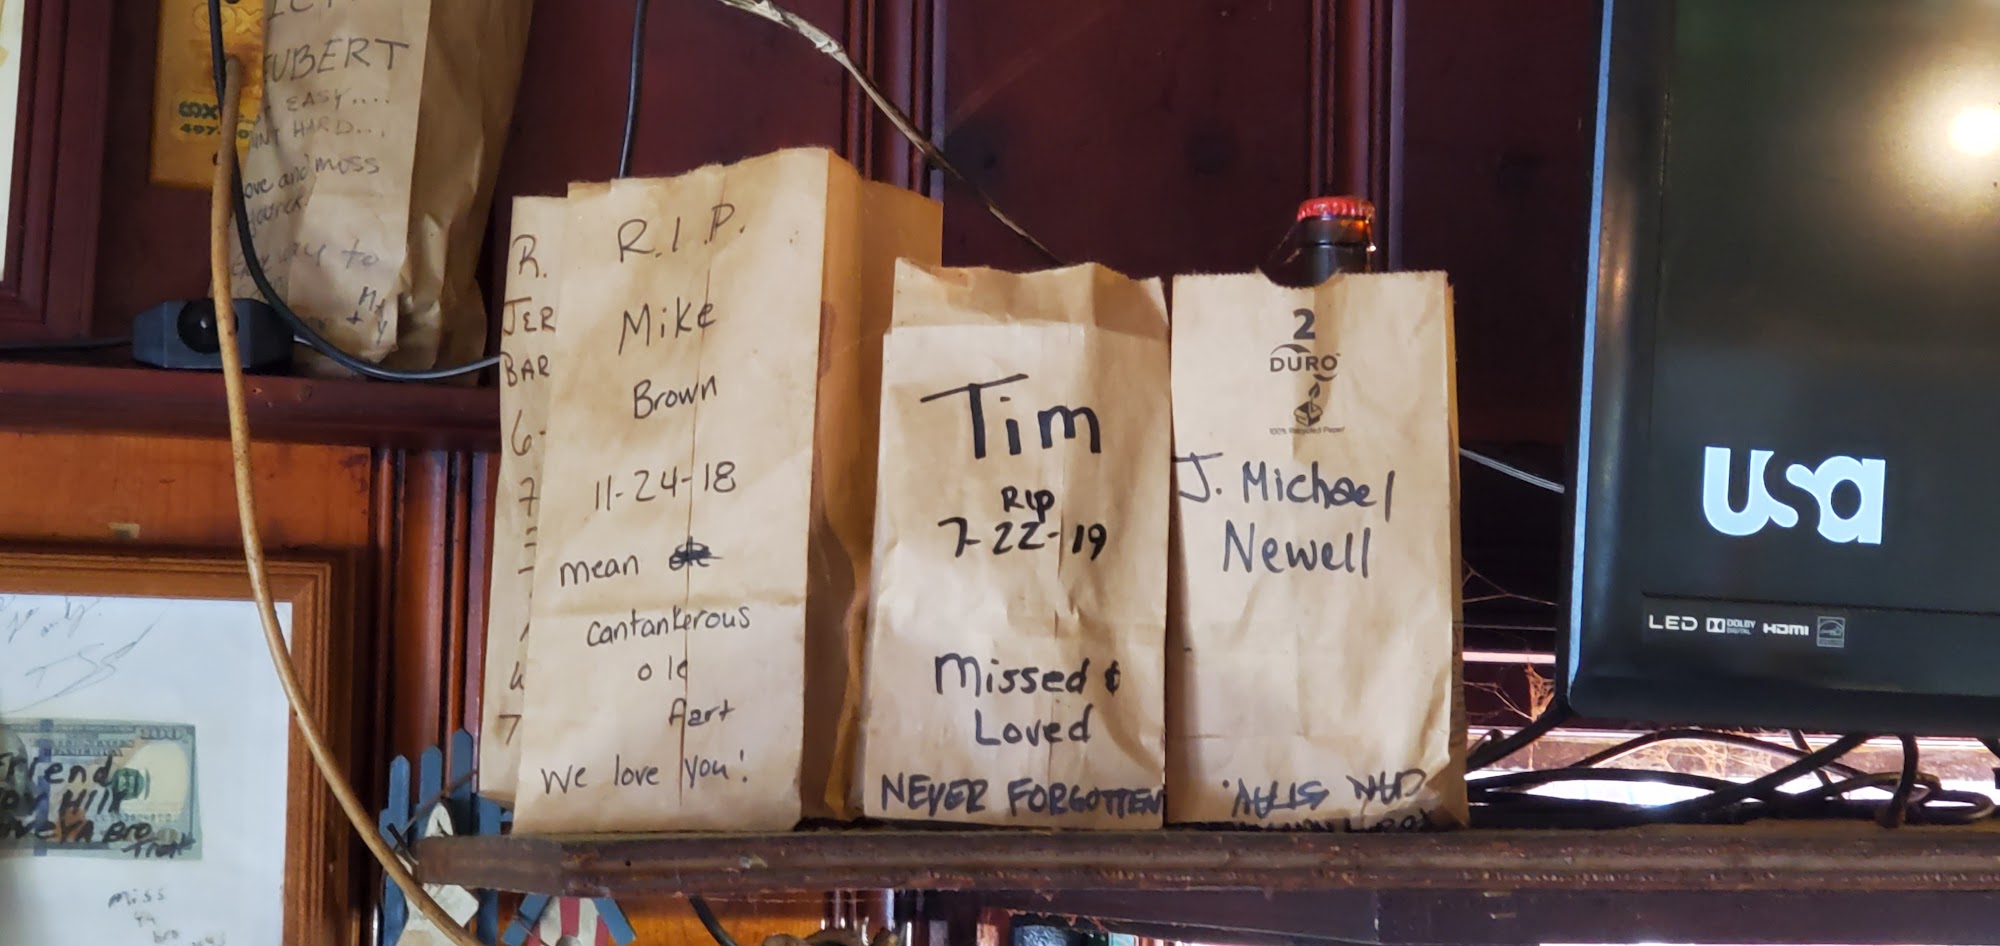 UBERT
EASY....
HARD...
ove and moss
way to
R.
JER
BAR
6-
7
R.I.P.
Mike
Brown
11-24-18
mean
cantankerous
old
fart
We love you!
Tim
RIP
7-22-19
Missed &
Loved
NEVER FORGOTTEN
2
DURO
100% Recycled Paper
J. Michael
Newell
CAN STAY.
usa
LED DOLBY DIGITAL HDMI
Friend
Bro
Miss
ya
bro